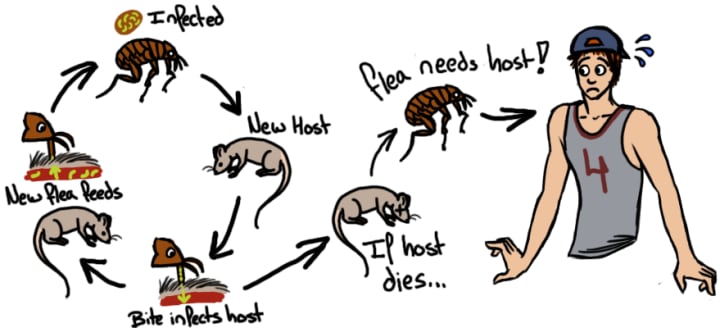 Infected
New Host
New flea feeds
Bite infects host
If host
dies...
flea needs host!
4